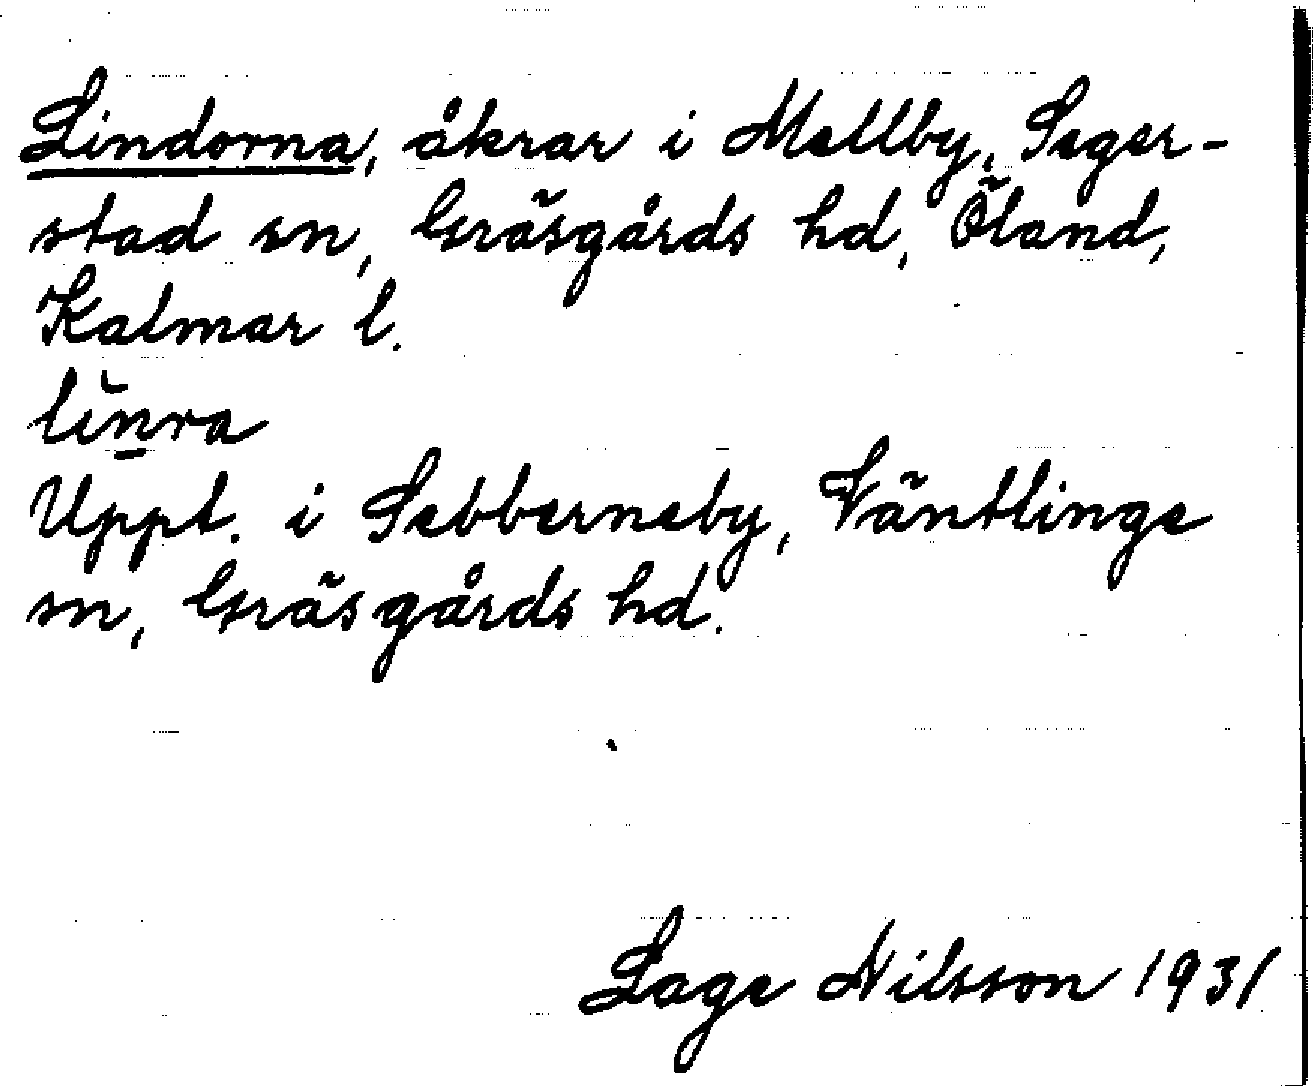 Lindorna, åkrar i Mellby, Seger-
stad sn, Gräsgårds hd, Öland,
Kalmar l.
lĭn̲ra
Uppt. i Sebberneby, Ventlinge
sn, Gräsgårds hd.
Lage Nilsson 1931